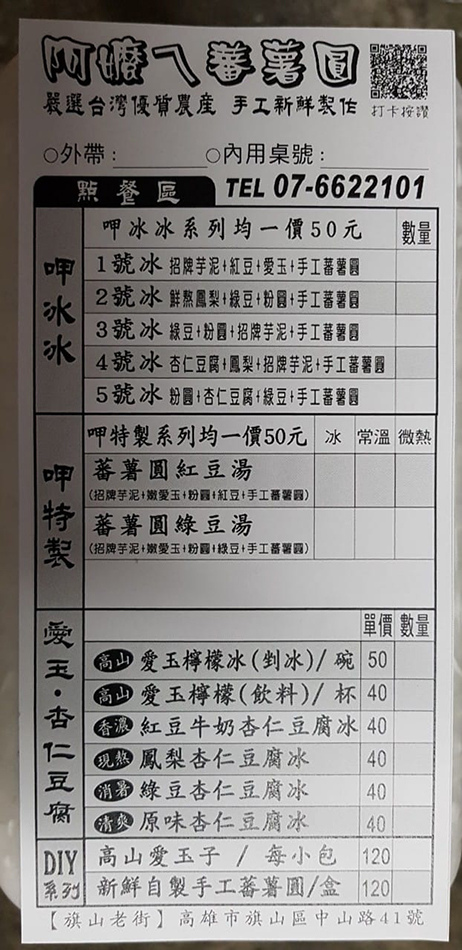 阿嬤ㄟ蕃薯圓
嚴選台灣優質農産 手工新鮮製作 打卡按讚
○外帶：________ ○內用桌號：________
點餐區 TEL 07-6622101
呷冰冰
呷冰冰系列均一價50元 數量
1號冰 招牌芋泥+紅豆+愛玉+手工蕃薯圓
2號冰 鮮熬鳳梨+綠豆+粉圓+手工蕃薯圓
3號冰 綠豆+粉圓+招牌芋泥+手工蕃薯圓
4號冰 杏仁豆腐+鳳梨+招牌芋泥+手工蕃薯圓
5號冰 粉圓+杏仁豆腐+綠豆+手工蕃薯圓
呷特製
呷特製系列均一價50元 冰 常溫 微熱
蕃薯圓紅豆湯
(招牌芋泥+嫩愛玉+粉圓+紅豆+手工蕃薯圓)
蕃薯圓綠豆湯
(招牌芋泥+嫩愛玉+粉圓+綠豆+手工蕃薯圓)
愛玉·杏仁豆腐
單價 數量
高山 愛玉檸檬冰(剉冰)/ 碗 50
高山 愛玉檸檬(飲料)/ 杯 40
香濃 紅豆牛奶杏仁豆腐冰 40
現熬 鳳梨杏仁豆腐冰 40
消暑 綠豆杏仁豆腐冰 40
清爽 原味杏仁豆腐冰 40
DIY系列
高山愛玉子 / 每小包 120
新鮮自製手工蕃薯圓/盒 120
【旗山老街】高雄市旗山區中山路41號